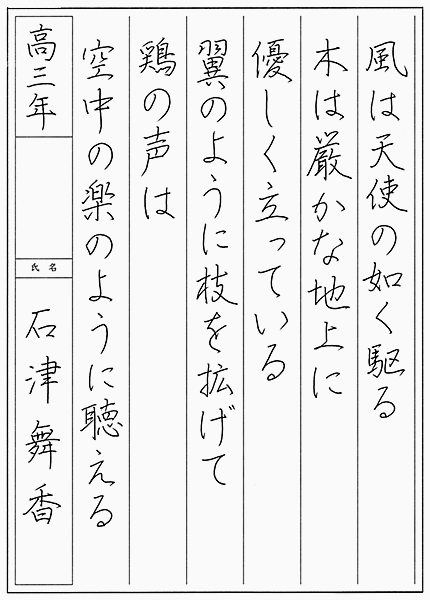 風は天使の如く駆る
木は厳かな地上に
優しく立っている
翼のように枝を拡げて
鶏の声は
空中の楽のように聴える
高三年
氏名
石津舞香